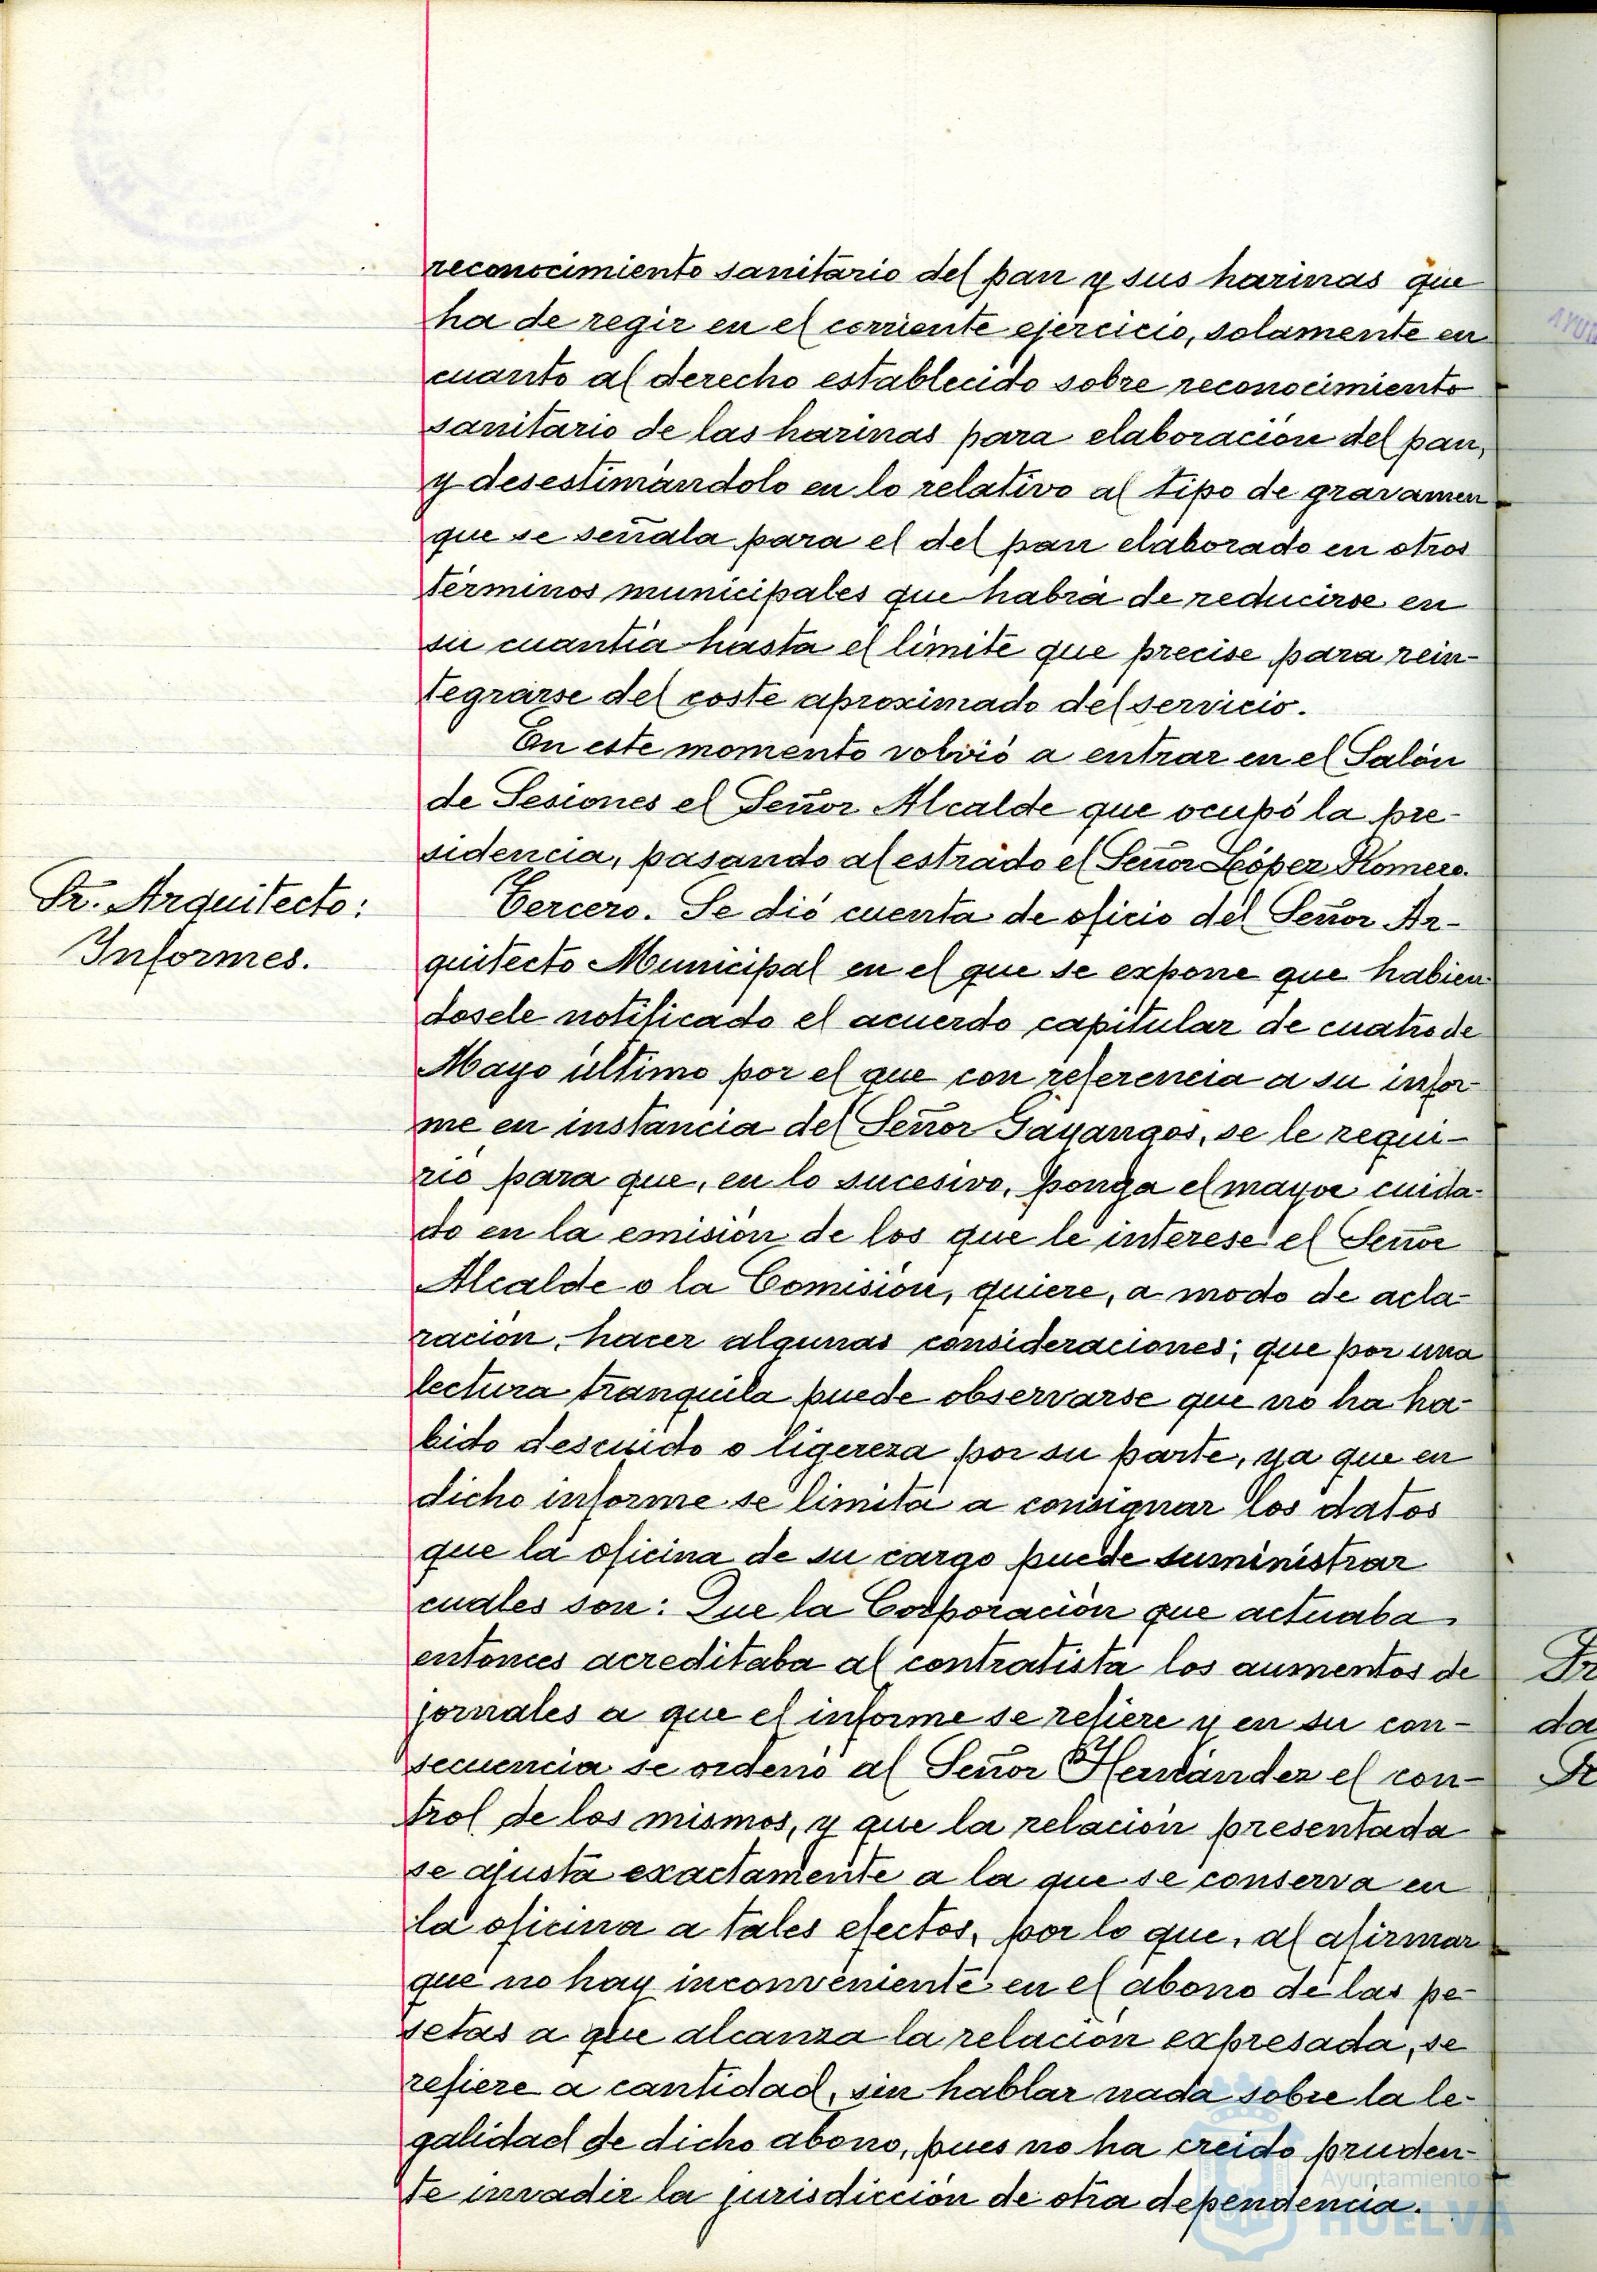 reconocimiento sanitario del pan y sus harinas que
ha de regir en el corriente ejercicio, solamente en
cuanto al derecho establecido sobre reconocimiento
sanitario de las harinas para elaboración del pan,
y desestimándolo en lo relativo al tipo de gravamen
que se señala para el del pan elaborado en otros
términos municipales que habrá de reducirse en
su cuantía hasta el límite que precise para rein-
tegrarse del coste aproximado del servicio.
En este momento volvió a entrar en el Salón
de Sesiones el Señor Alcalde que ocupó la pre-
sidencia, pasando al estrado el Señor López Romero.
Sr. Arquitecto:
Informes.
Tercero. Se dió cuenta de oficio del Señor Ar-
quitecto Municipal en el que se expone que habien-
dosele notificado el acuerdo capitular de cuatro de
Mayo último por el que con referencia a su infor-
me en instancia del Señor Gayangos, se le requi-
rió para que, en lo sucesivo, ponga el mayor cuida-
do en la emisión de los que le interese el Señor
Alcalde o la Comisión, quiere, a modo de acla-
ración, hacer algunas consideraciones; que por una
lectura tranquila puede observarse que no ha ha-
bido descuido o ligereza por su parte, ya que en
dicho informe se limita a consignar los datos
que la oficina de su cargo puede suministrar
cuales son: Que la Corporación que actuaba
entonces acreditaba al contratista los aumentos de
jornales a que el informe se refiere y en su con-
secuencia se ordenó al Señor Hernández el con-
trol de los mismos, y que la relación presentada
se ajusta exactamente a la que se conserva en
la oficina a tales efectos, por lo que, al afirmar
que no hay inconveniente en el abono de las pe-
setas a que alcanza la relación expresada, se
refiere a cantidad, sin hablar nada sobre la le-
galidad de dicho abono, pues no ha creido pruden-
te invadir la jurisdicción de otra dependencia.
Ayuntamiento de
HUELVA